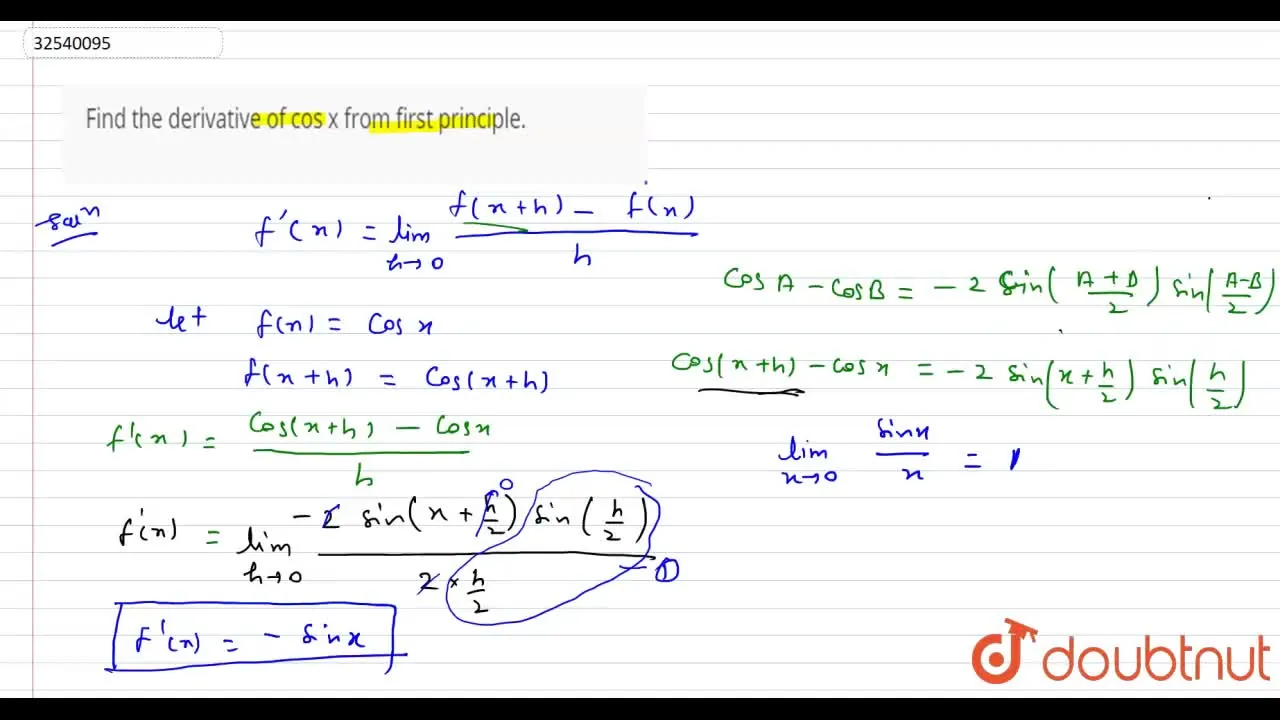 32540095
Find the derivative of cos x from first principle.
Solⁿ
f'(x) = lim h→0 (f(x+h) - f(x)) / h
let f(x) = Cos x
f(x+h) = Cos(x+h)
f'(x) = (Cos(x+h) - Cosx) / h
f'(x) = lim h→0 (-2 sin(x + h/2) sin(h/2)) / (2 × h/2) - ①
0
f'(x) = - sinx
CosA - CosB = -2 Sin((A+B)/2) sin((A-B)/2)
Cos(x+h) - cosx = -2 sin(x+h/2) sin(h/2)
lim x→0 sinx / x = 1
doubtnut